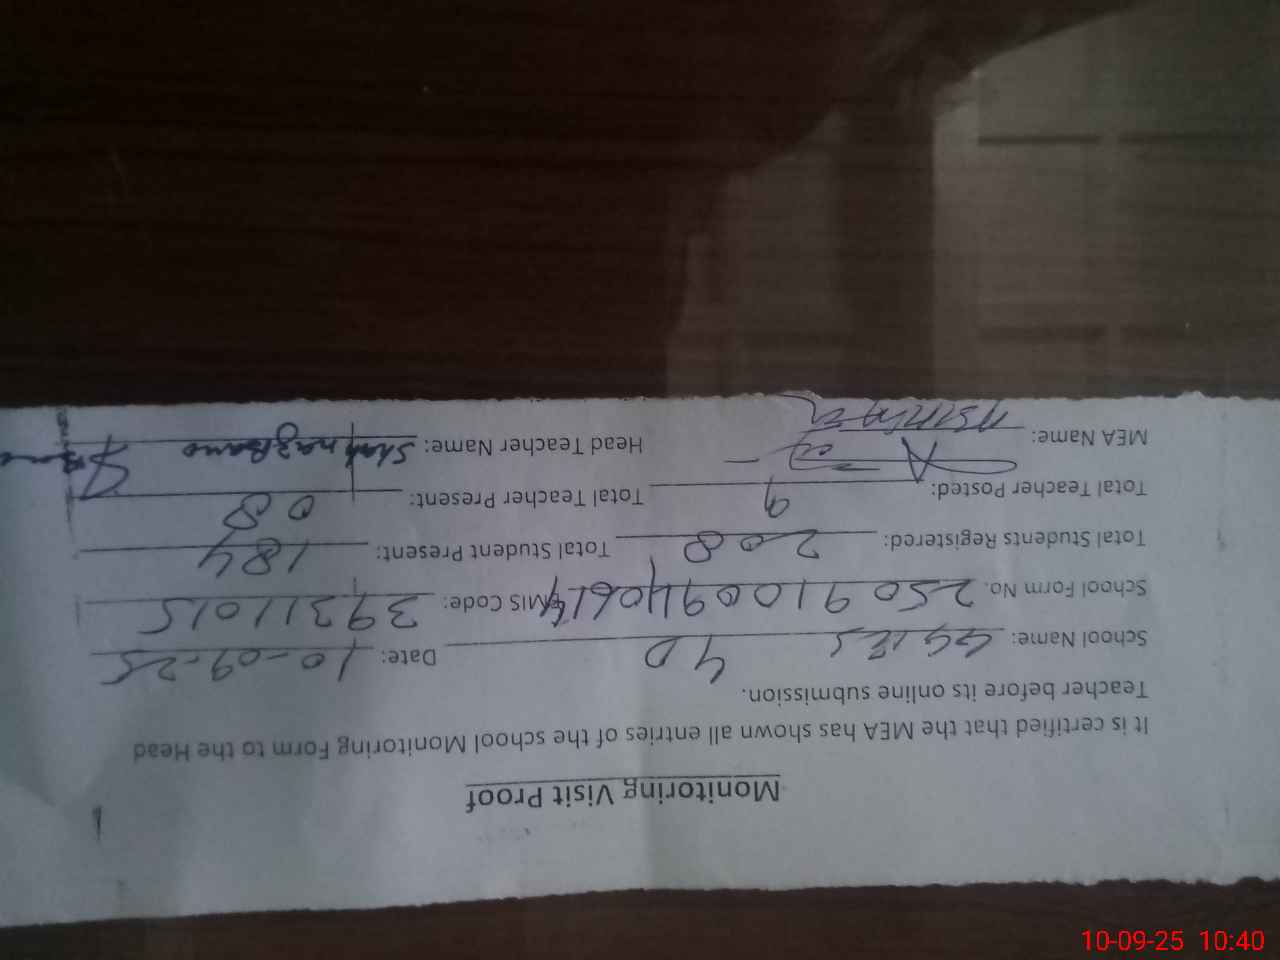 Monitoring Visit Proof
It is certified that the MEA has shown all entries of the school Monitoring Form to the Head
Teacher before its online submission.
School Name: GGHES 4D Date: 10-09-25
School Form No. 2509100940614 EMIS Code: 39311015
Total Students Registered: 208 Total Student Present: 184
Total Teacher Posted: 9 Total Teacher Present: 08
MEA Name: Head Teacher Name: Shahnaz Bano
10-09-25 10:40